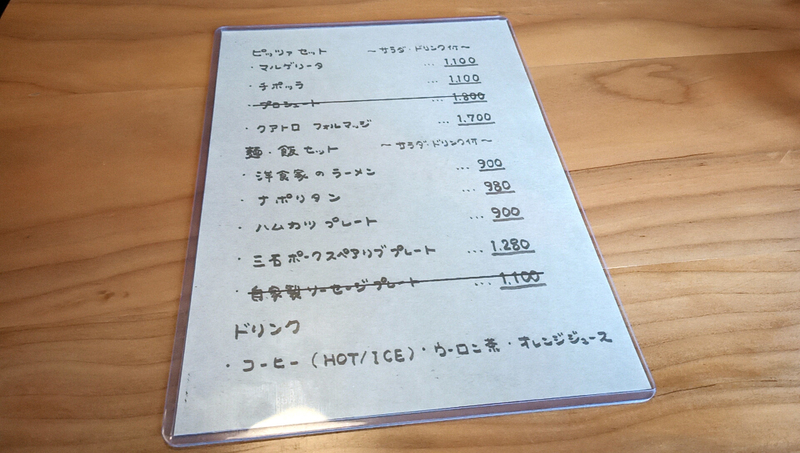 ピッツァセット 〜サラダ・ドリンク付〜
・マルゲリータ … 1,100
・チポッラ … 1,100
・プロシュート … 1,800
・クアトロ フォルマッジ … 1,700
麺・飯セット 〜サラダ・ドリンク付〜
・洋食家のラーメン … 900
・ナポリタン … 980
・ハムカツプレート … 900
・三石ポークスペアリブプレート … 1,280
・自家製ソーセージプレート … 1,100
ドリンク
・コーヒー(HOT/ICE)・ウーロン茶・オレンジジュース